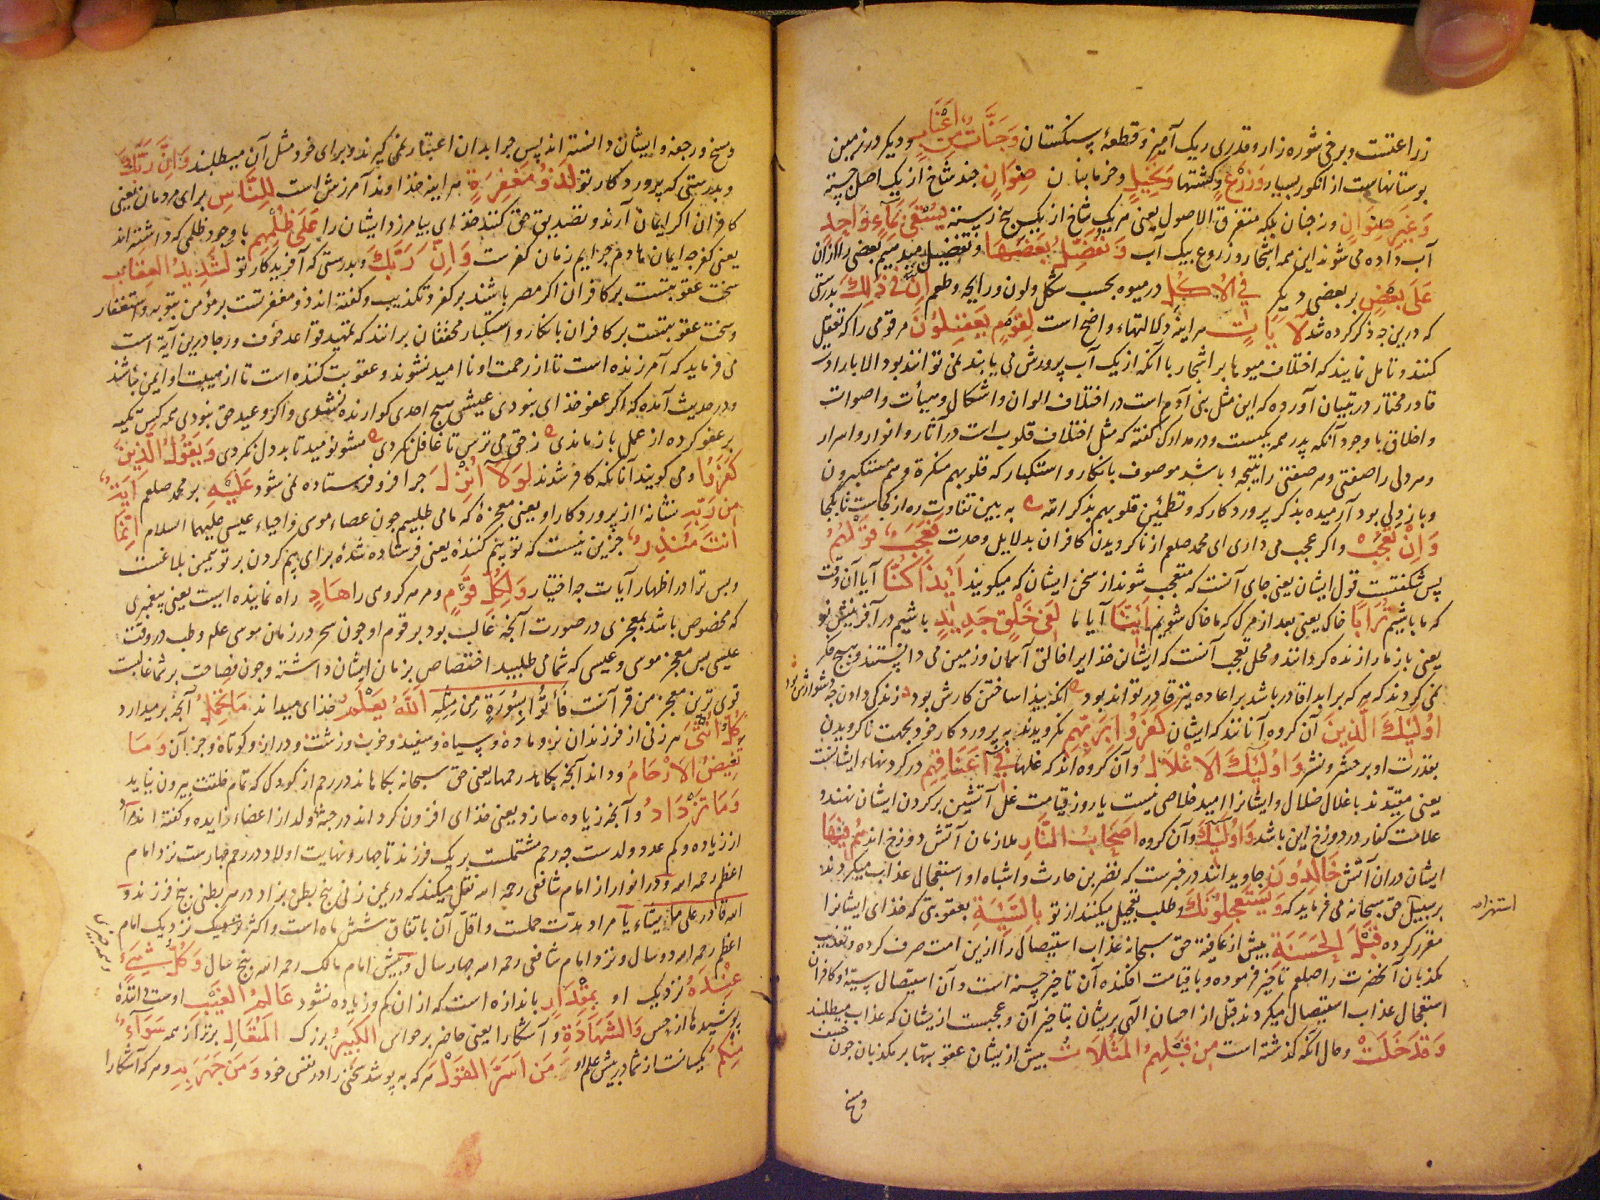 زراعتست و برخی شوره زار و قدری ریک آمیز و قطعهٔ سنکستان وَجَنَّاتٌ مِنْ اَعْنَابٍ و دیکر در زمین
بوستانهاست از انکور بسیار وَزَرْعٌ و کشتها وَنَخِیلٌ و خرما بنان صِنْوَانٌ چند شاخ از یک اصل رسته
وَغَیْرُ صِنْوَانٍ و درختان بلکه متفرق الاصول یعنی هر یک شاخ از یک بیخ رسته یُسْقَیٰ بِمَاءٍ وَاحِدٍ
آب داده می شوند این همه اشجار و زروع بیک آب وَنُفَضِّلُ بَعْضَهَا و تفضیل میدهیم بعضی را از ان
عَلَیٰ بَعْضٍ بر بعضی دیکر فِی الْاُکُلِ در میوه بحسب شکل و لون و رایحه و طعم اِنَّ فِی ذٰلِکَ بدرستی
که درین چه ذکر کرده شد لَاٰیَاتٍ هر اینه دلالتهاء واضح است لِقَوْمٍ یَعْقِلُونَ مر قومی را که تعقل
کنند و تامل نمایند که اختلاف میوها بر اشجار با آنکه از یک آب پرورش می یابند نمی تواند بود الا بارادت
قادر مختار در تبیان آورده که این مثل بنی آدم است در اختلاف الوان و اشکال و هیأت و اصوات
و اخلاق با وجود آنکه پدر همه یکیست و در مدارک کفته که مثل اختلاف قلوب است در آثار و انوار و اسرار
و هر دلی را صفتی و هر صفتی را نتیجهٔ باشد موصوف بانکار و استکبار که قلوبهم منکرة و هم مستکبرون
و باز دلی بود آرمیده بذکر پروردکار که و تطمئن قلوبهم بذکر الله به بین تفاوت ره از کجاست تا بکجا
وَاِنْ تَعْجَبْ و اکر عجب می داری ای محمد صلعم از ناکرویدن کافران بدلایل وحدت فَعَجَبٌ قَوْلُهُمْ
پس شکفتست قول ایشان یعنی جای آنست که متعجب شوند از سخن ایشان که میکویند اَئِذَا کُنَّا آیا آن وقت
که ما باشیم تُرَابًا خاک یعنی بعد از مرک که ما خاک شویم اَئِنَّا آیا ما لَفِی خَلْقٍ جَدِیدٍ باشیم در آفرینش نو
یعنی باز ما را زنده کردانند و محل تعجب آنست که ایشان خدایرا خالق آسمان و زمین می دانستند و هیچ فکر
نمی کردند که هر که بر ابدا قادر باشد بر اعاده نیز قادر تواند بود انکه پیدا ساختن کارش بود زندکی دادن چه دشوارش بود
اُولٰئِکَ الَّذِینَ آن کروه آنانند که ایشان کَفَرُوا بِرَبِّهِمْ نکرویدند به پروردکار خود بجهت ناکرویدن
بقدرت او بر حشر و نشر وَاُولٰئِکَ الْاَغْلَالُ و آن کروه اند که غلها فِی اَعْنَاقِهِمْ در کردنهاء ایشانست
یعنی مقیدند باغلال ضلال و ایشانرا امید خلاصی نیست یا روز قیامت غل آتشین بر کردن ایشان نهند و
علامت کفار در دوزخ این باشد وَاُولٰئِکَ و آن کروه اَصْحَابُ النَّارِ ملازمان آتش دوزخ اند هُمْ فِیهَا
ایشان دران آتش خَالِدُونَ جاوید انند در خبرست که نضر بن حارث و اشباه او استعجال عذاب میکردند
بر سبیل حق سبحانه می فرماید که وَیَسْتَعْجِلُونَکَ و طلب تعجیل میکنند از تو بِالسَّیِّئَةِ بعقوبتی که خدای ایشانرا
استهزاء
مقرر کرده قَبْلَ الْحَسَنَةِ پیش از عافیة حق سبحانه عذاب استیصال را ازین امت صرف کرده و تعذیب
مکذبان آنحضرت را صلعم تاخیر فرموده و با قیامت افکنده آن تاخیر حسنه است و آن استیصال سیئة و کافران
استعجال عذاب استیصال میکردند قبل از احسان الهی بریشان بتاخیر آن و عجبست ازیشان که عذاب میطلبند
وَقَدْ خَلَتْ و حال آنکه کذشته است مِنْ قَبْلِهِمُ الْمَثُلَاتُ پیش ازیشان عقوبتها بر مکذبان چون خسف
و مسخ
و مسخ و رجفه و ایشان دانسته اند پس چرا بدان اعتبار نمی کیرند و برای خود مثل آن میطلبند وَاِنَّ رَبَّکَ
و بدرستی که پروردکار تو لَذُو مَغْفِرَةٍ هر اینه خداوند آمرزش است لِلنَّاسِ برای مردمان یعنی
کافران اکر ایمان آرند و تصدیق حق کنند خدای بیامرزد ایشان را عَلَیٰ ظُلْمِهِمْ با وجود ظلمی که داشته اند
یعنی کفر چه ایمان هادم جرایم زمان کفرست وَاِنَّ رَبَّکَ و بدرستی که آفریدکار تو لَشَدِیدُ الْعِقَابِ
سخت عقوبتست بر کافران اکر مصر باشند بر کفر و تکذیب و کفته اند ذو مغفرتست بر مؤمن بتوبه و استغفار
و سخت عقوبتست بر کافران بانکار و استکبار محققان برانند که تمهید قواعد خوف و رجا درین آیة است
می فرماید که آمرزنده است تا از رحمت او ناامید نشوند و عقوبت کننده است تا از هیبت او ایمن نباشند
و در حدیث آمده که اکر عفو خدای نبودی عیشی هیچ احدی کوارنده نشدی و اکر وعید حق نبودی همه کس تکیه
بر عفو کرده از عمل باز ماندی ز حق می ترس تا غافل نکردی مشو نومید تا بددل نکردی وَیَقُولُ الَّذِینَ
کَفَرُوا و می کویند آنانکه کافر شدند لَوْلَا اُنْزِلَ چرا فرو فرستاده نمی شود عَلَیْهِ بر محمد صلعم اٰیَةٌ
مِنْ رَبِّهِ نشانهٔ از پروردکار او یعنی معجزهٔ که ما می طلبیم چون عصاء موسی و احیاء عیسی علیهما السلام اِنَّمَا
اَنْتَ مُنْذِرٌ جزین نیست که تو بیم کنندهٔ یعنی فرستاده شدهٔ برای بیم کردن بر تو همین بلاغست
و بس ترا در اظهار آیات چه اختیار وَلِکُلِّ قَوْمٍ و مر هر کروهی را هَادٍ راه نماینده ایست یعنی پیغمبری
که مخصوص باشد بمعجزی در صورت آنچه غالب بود بر قوم او چون سحر در زمان موسی علم و طب در وقت
عیسی پس معجز موسی و عیسی که شما می طلبید اختصاص بزمان ایشان داشته و چون فصاحت بر شما غالبست
قوی ترین معجز من قرآنست فَأْتُوا بِسُورَةٍ مِنْ مِثْلِهِ اَللهُ یَعْلَمُ خدای میداند مَا تَحْمِلُ آنچه بر میدارد
کُلُّ اُنْثَیٰ هر زنی از فرزندان نر و ماده و سیاه و سفید و خوب و زشت و دراز و کوتاه و جز آن وَمَا
تَغِیضُ الْاَرْحَامُ و داند آنچه بکاهد رحمها یعنی حق سبحانه بکاهاند در رحم از کودکی که تمام خلقت بیرون نیاید
وَمَا تَزْدَادُ و آنچه زیاده سازد یعنی خدای افزون کرداند در جثه ولد از اعضاء زایده و کفته اند مراد
از زیاده و کم عدد ولدست چه رحم مشتملست بر یک فرزند تا چهار و نهایت اولاد در رحم چهارست نزد امام
اعظم رحمه الله و در انوار از امام شافعی رحمه الله نقل میکند که در یمن زنی پنج بطن بزاد در هر بطنی پنج فرزند و
الله قادر علی ما یشاء یا مراد مدت حملست و اقل آن باتفاق شش ماه است و اکثر نزدیک امام
اعظم رحمه الله دو سال و نزد امام شافعی رحمه الله چهار سال و پیش امام مالک رحمه الله پنج سال وَکُلُّ شَیْءٍ
عِنْدَهُ نزدیک او بِمِقْدَارٍ باندازه است که از ان کم و زیاده نشود عَالِمُ الْغَیْبِ اوست دانندهٔ
پوشیدها از حس وَالشَّهَادَةِ و آشکارا یعنی حاضر بر حواس الْکَبِیرُ بزرک الْمُتَعَالِ برتر از همه سَوَاءٌ
مِنْکُمْ یکسانست از شما در پیش علم او مَنْ اَسَرَّ الْقَوْلَ هر که به پوشد سخن را در نفس خود وَمَنْ جَهَرَ بِهِ و هر که آشکارا